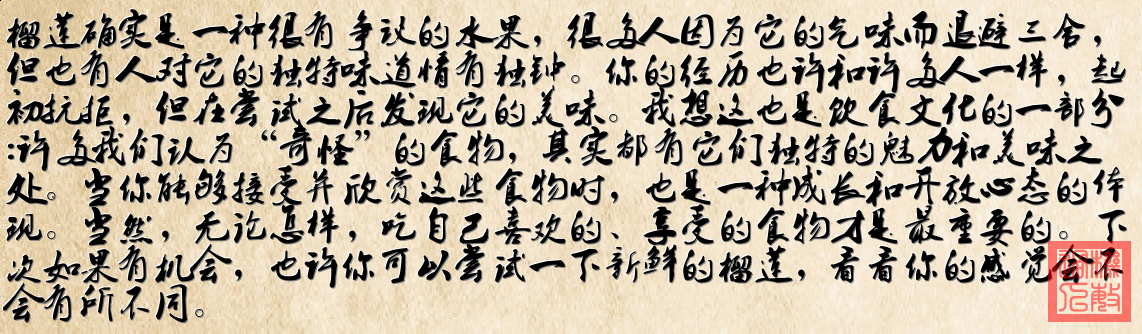 榴莲确实是一种很有争议的水果，很多人因为它的气味而退避三舍，
但也有人对它的独特味道情有独钟。你的经历也许和许多人一样，起
初抗拒，但在尝试之后发现它的美味。我想这也是饮食文化的一部分
:许多我们认为“奇怪”的食物，其实都有它们独特的魅力和美味之
处。当你能够接受并欣赏这些食物时，也是一种成长和开放心态的体
现。当然，无论怎样，吃自己喜欢的、享受的食物才是最重要的。下
次如果有机会，也许你可以尝试一下新鲜的榴莲，看看你的感觉会不
会有所不同。